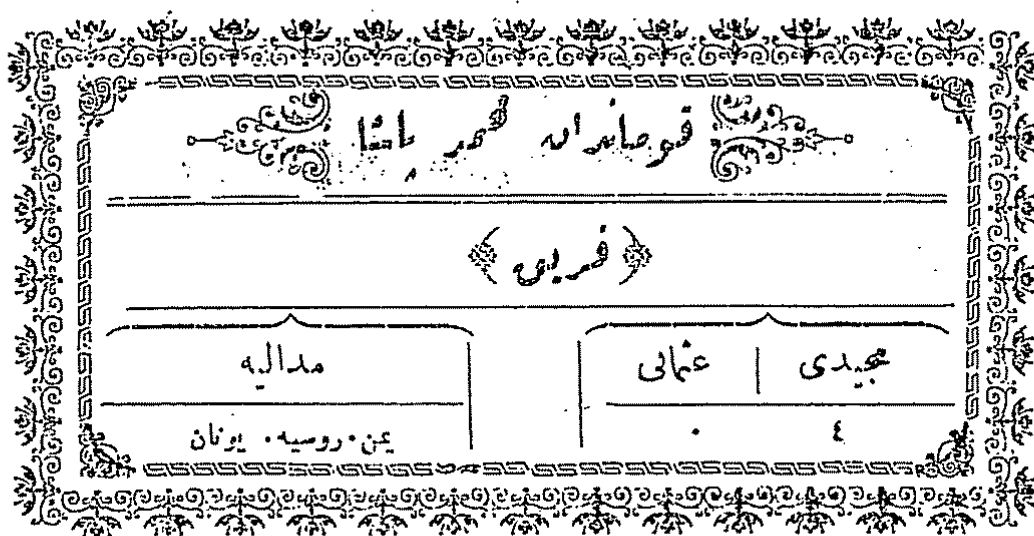 قوماندان محمد پاشا
﴿ فریق ﴾
مجیدی عثمانی مدالیه
٤ ٠ یمن. روسیه. یونان